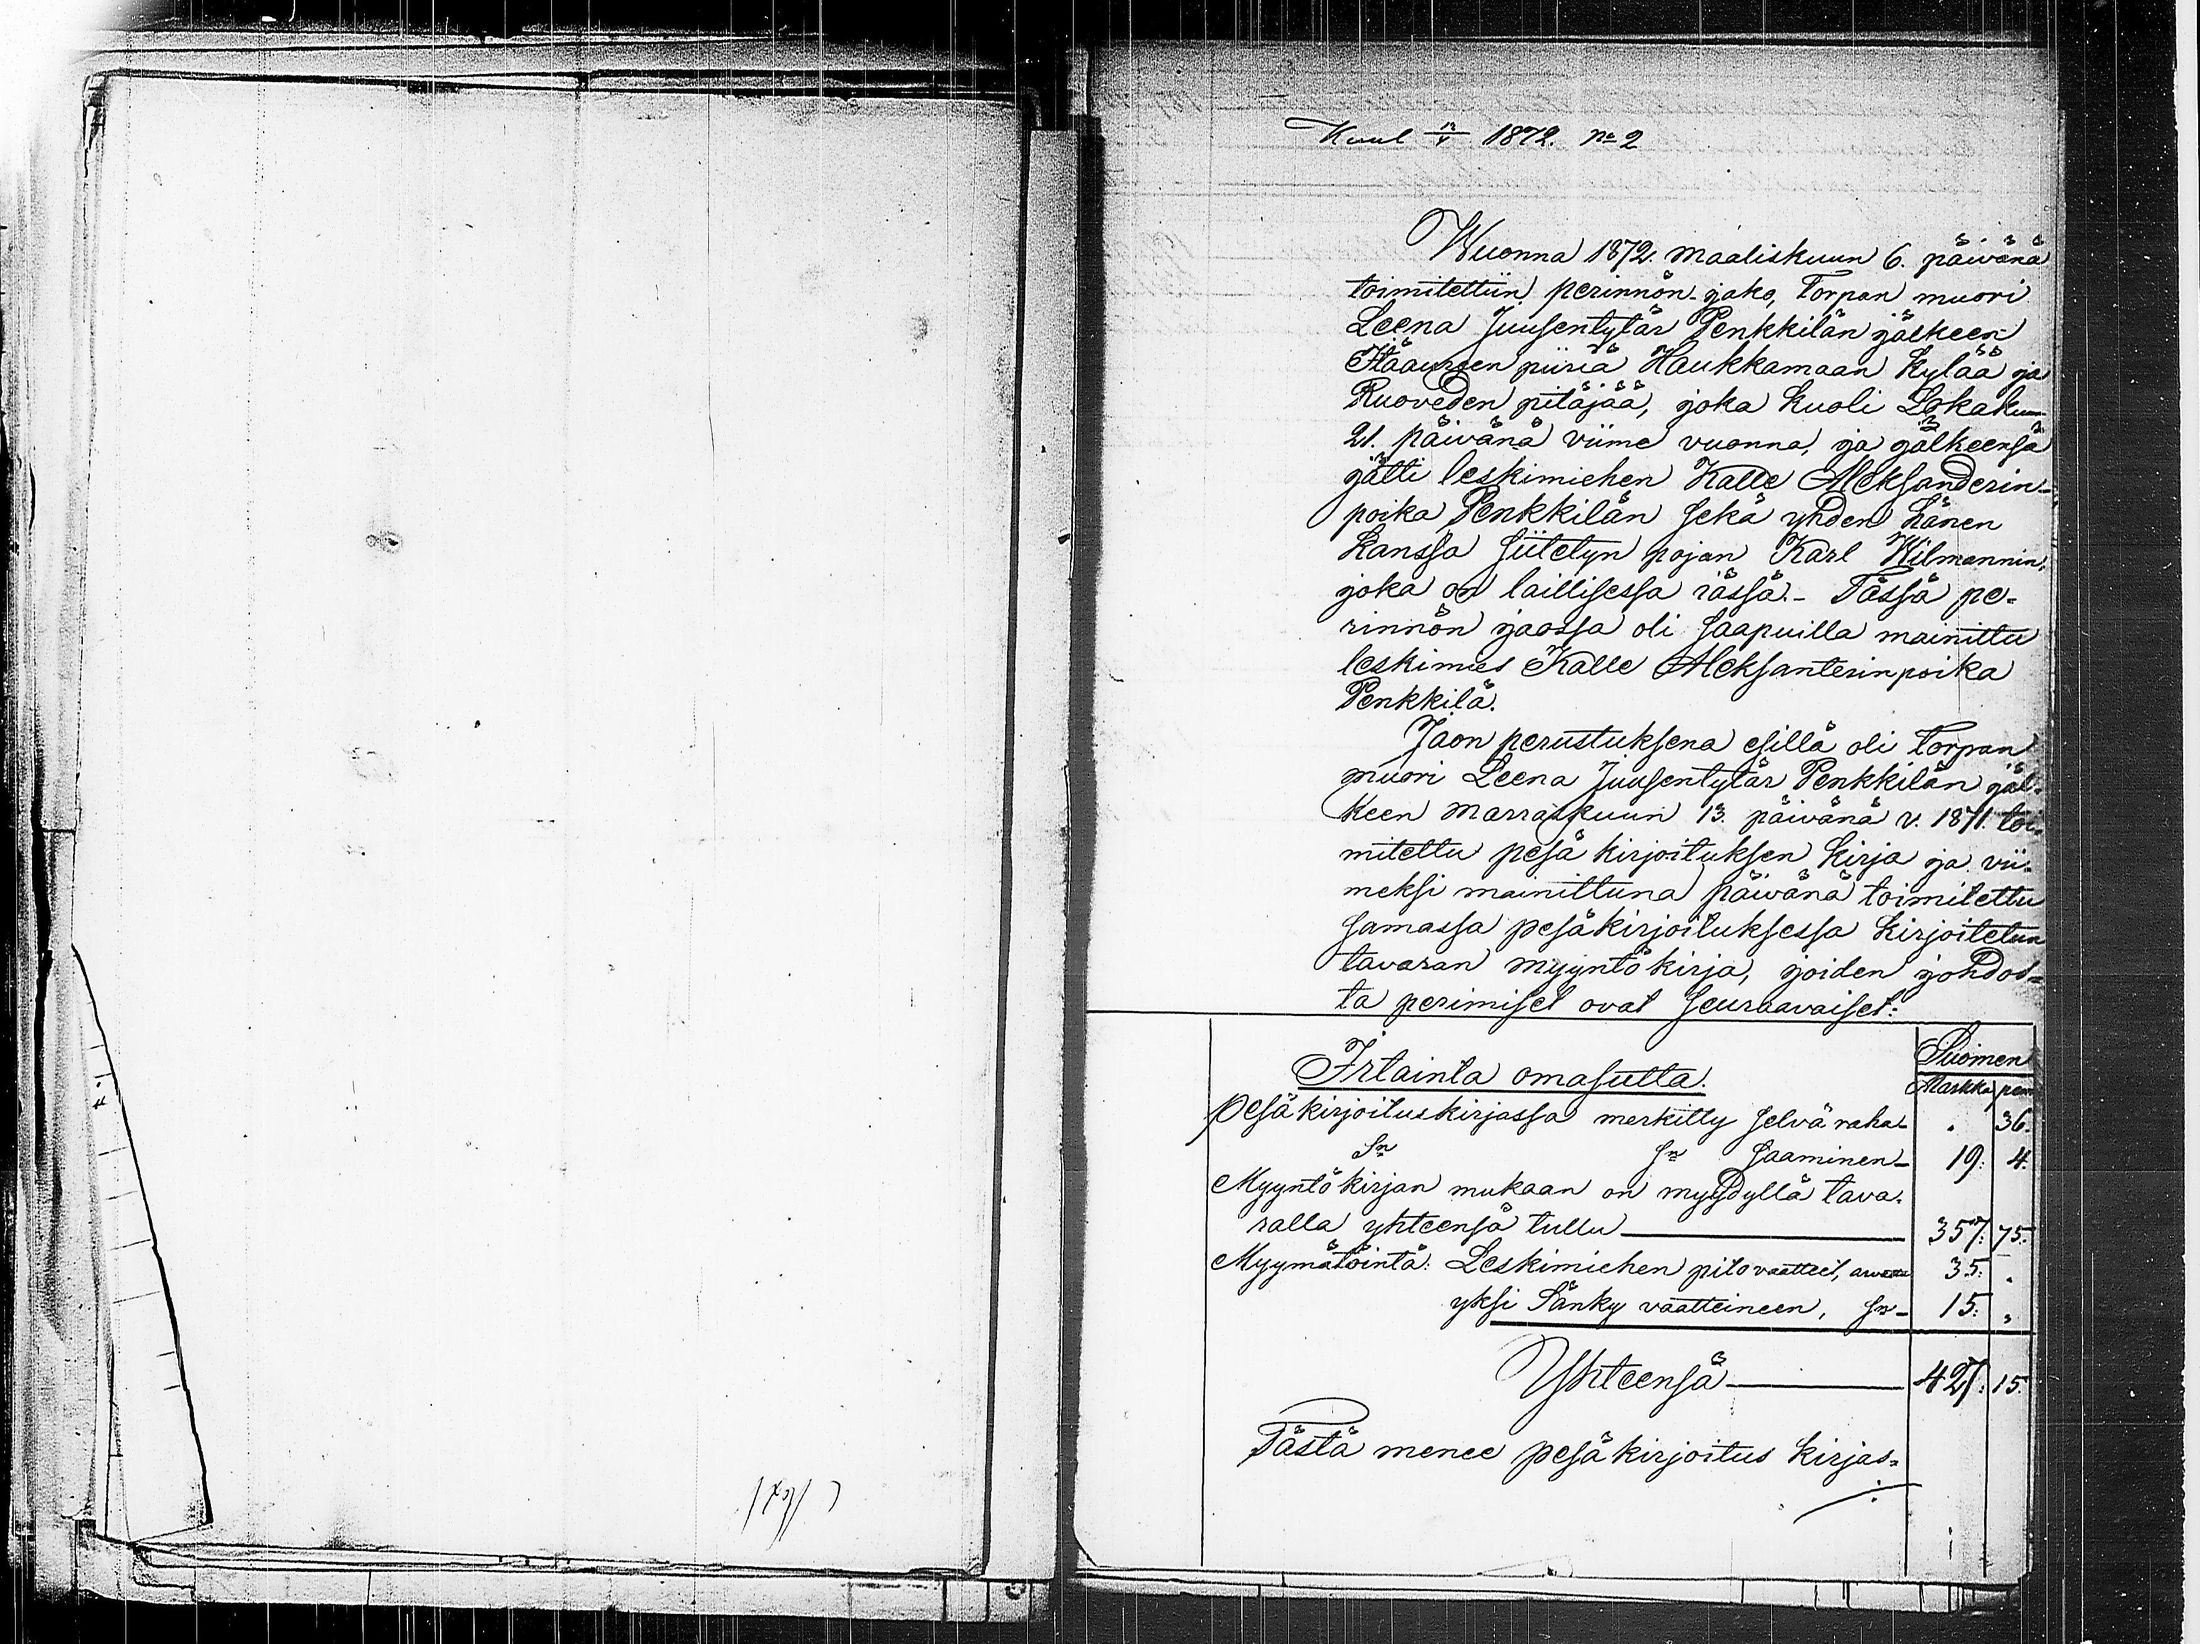 Kuul 12/V 1872. No 2
Wuonna 1872. Maaliskuun 6. päivänä
toimitettiin perinnön-jako, Torpan muori
Leena Juusentytär Penkkilän jälkeen
piiriä Haukkamaan kylää ja
Ruoveden pitäjää, joka kuoli Lokakuun
21. päivänä viime vuonna, ja jälkeensä
jätti leskimiehen Kalle Aleksanderin-
poika Penkkilän sekä yhden hänen
kanssa siitetyn pojan Karl Wilmannin,
joka on laillisessa iässä.- Tässä pe-
rinnön jaossa oli saapuilla mainittu
leskimies Kalle Aleksanterinpoika
Penkkilä.
Jaon perustuksena esillä oli Torpan
muori Leena Juusentytär Penkkilän jäl-
keen Marraskuun 13. päivänä v. 1871. toi-
mitettu pesä kirjoituksen kirja ja vii-
meksi mainittuna päivänä toimitettu
samassa pesäkirjoituksessa kirjoitetun
tavaran myyntö kirja, joiden johdos-
ta perimiset ovat seuraavaiset:
Suomen
Irtainta omasutta. Markka pen
Pesäkirjoituskirjassa merkitty selvä raha - . 36.
Sn sn saaminen - 19: 4.
Myyntökirjan mukaan on myydyllä tava-
ralla yhteensä tullu 357: 75.
Myymätöintä: Leskimiehen pitovaatteet, 35: .
yksi Sänky vaatteineen, sn - 15: „
Yhteensä 427: 15.
Tästä menee pesäkirjoitus kirjas-